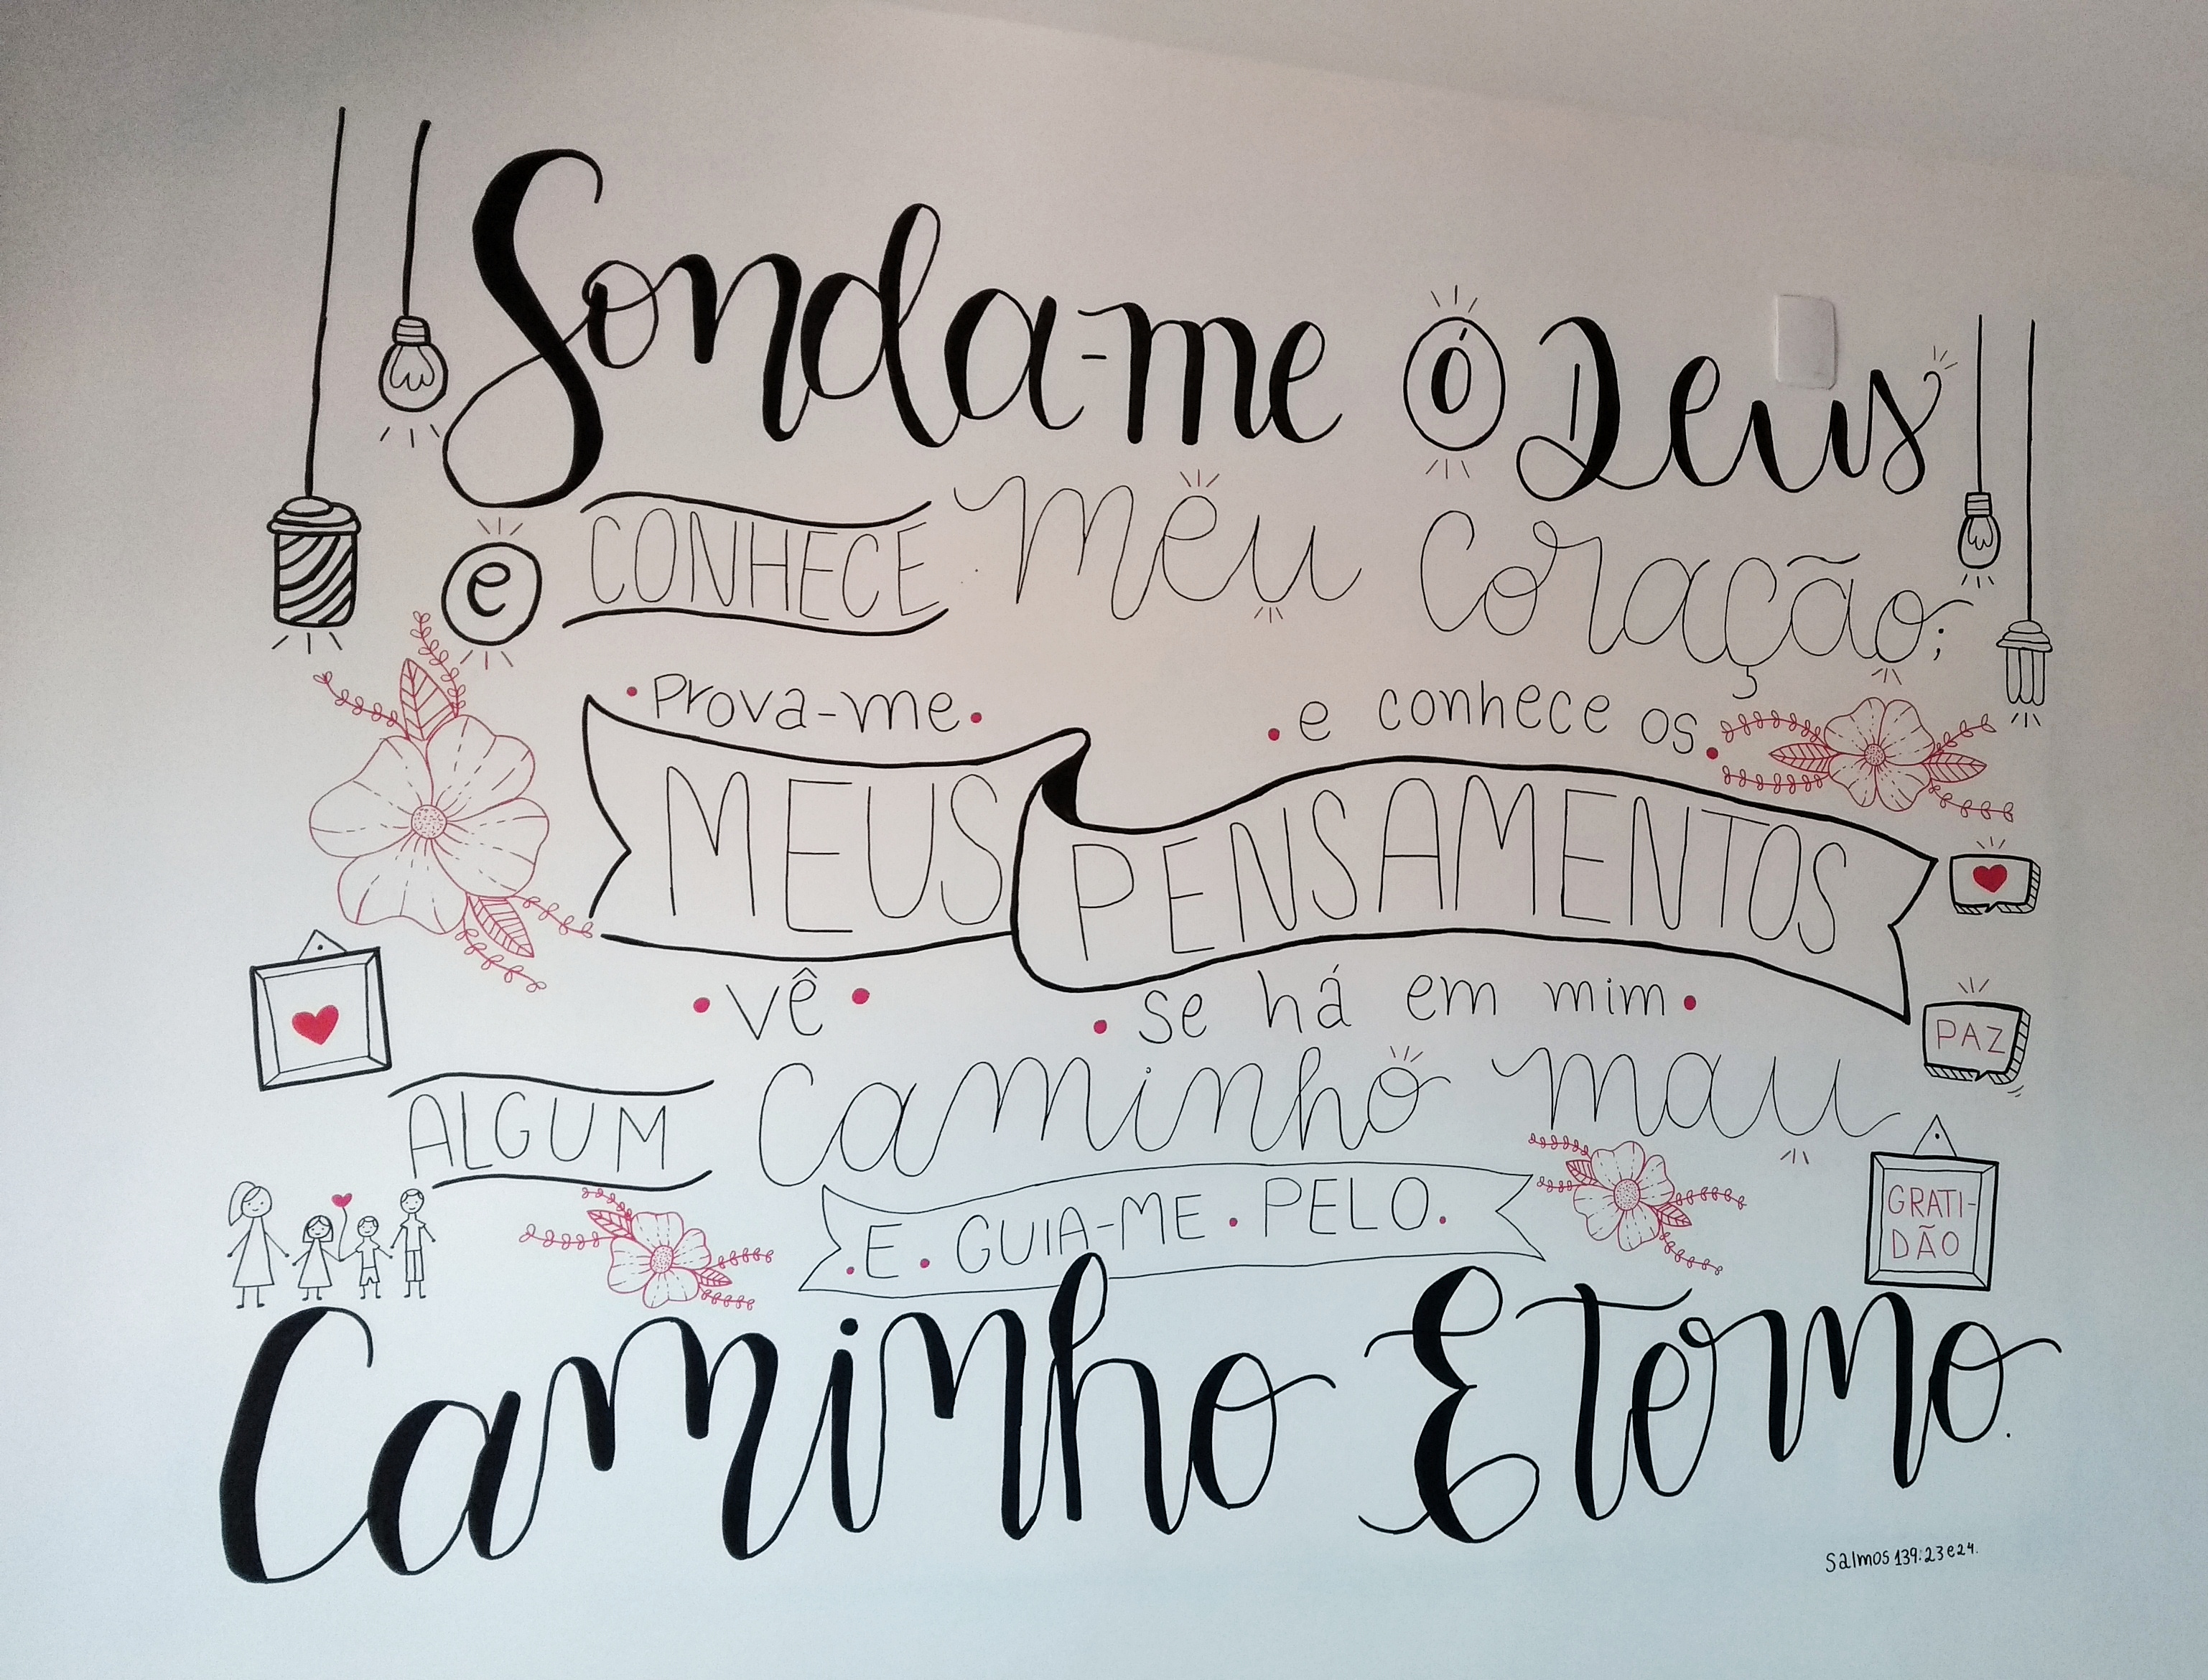 Sonda-me ó Deus
e CONHECE meu coração;
prova-me e conhece os
MEUS PENSAMENTOS
vê se há em mim
PAZ
ALGUM caminho mau
E GUIA-ME PELO
GRATI-
DÃO
Caminho Eterno.
Salmos 139:23 e 24.